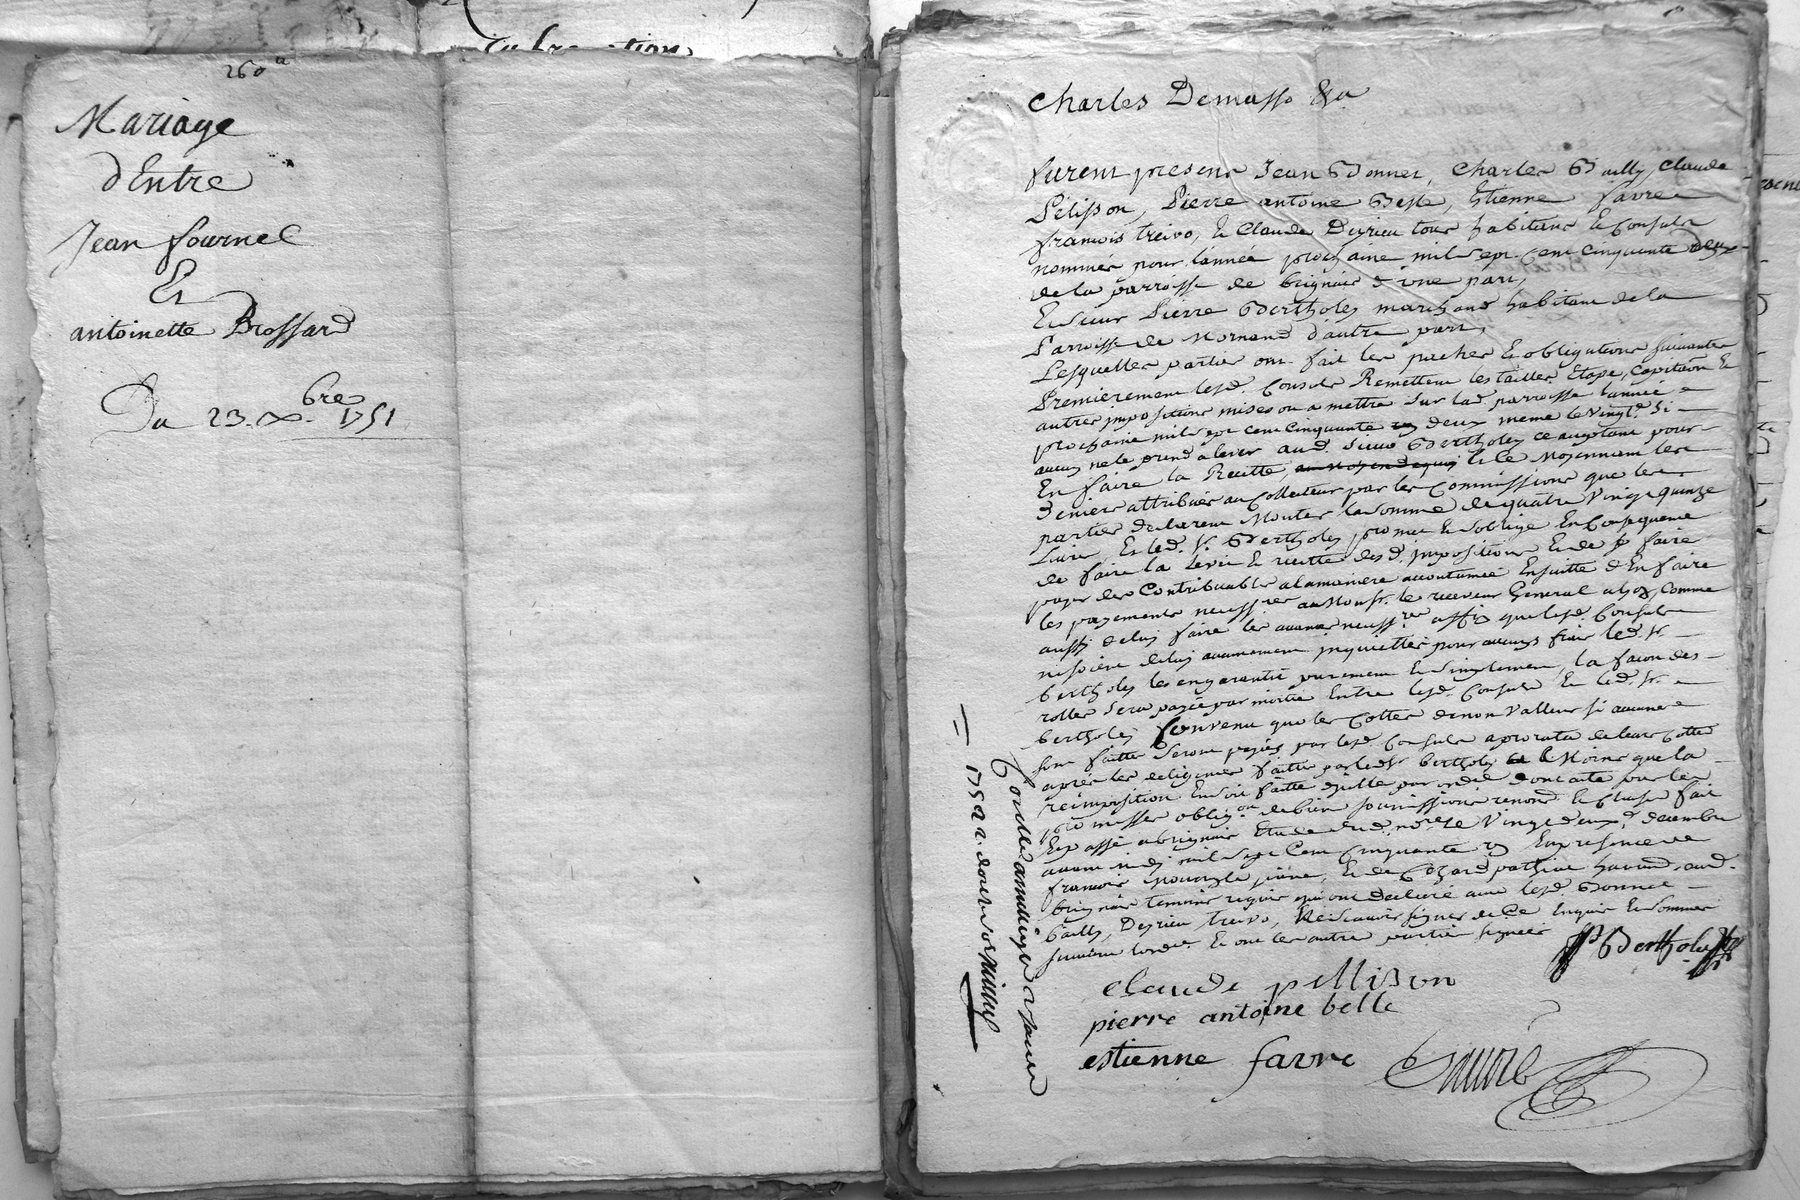 260
Mariage
d'Entre
Jean fournel
Et
antoinette Brossard
Du 23. Xbre 1751
Charles Demasso &a
furent presens Jean Bonnet, Charles Bailly, Claude
Pelisson, Pierre antoine Belle, Etienne favre
françois treivo, & Claude Deyrieu tous habitans & Consuls
nommés pour l'année prochaine mil sept cent cinquante deux
de la parroisse de brignais d'une part,
Et sieur Pierre Bertholey marchand habitant de la
Parroisse de Mornand d'autre part,
Lesquelles parties ont fait les paches & obligations suivantes
Premierement lesd. Consuls Remettent les tailles Etape, Capitaôn &
autres impositions mises ou a mettre sur lad. parroisse l'année
prochaine mil sept cent cinquante deux meme le vingt.e si
aucun ne le prend a lever aud. sieur Bertholey ce acceptant pour
En faire la Recette, & ce Moyennant les
deniers attribués au Collecteur par les Commissions que les
parties declarent Monter la somme de quatre vingt quinze
Livres, Et led. Sr. Bertholey promet & s'oblige En Consequence
de faire la Levée & recette desd. impositions & de se faire
payer des Contribuables a la maniere accoutumée Ensuitte d'En faire
les payements necess.res a Monsr. le receveur General comme
aussi de luy faire les avances necess.res affin que lesd. Consuls
ne soient inquiettés pour aucuns frais led. Sr.
bertholey les en garantit purement & simplement, la facon des
rolles sera payée par moitié Entre lesd. Consuls & led. Sr.
bertholey Convenu que les Cottes de non valleur si aucune
sont faittes seront payées par lesd. Consuls a prorata de leur Cotte
après les diligences faittes par led Sr bertholey a Moins que la
reimposition En soit faitte
promesses oblig.on de biens soumissions renonc.e & Clause fait
Et passé a brignais Etude dud. no.re le vingt deux.e decembre
avant midi mil sept Cent Cinquante un En presence de
françois
brignais temoins requis qui ont declaré avec lesd. Bonnet
bailly, Deyrieu, treivo, Ne scavoir signer de Ce Enquis & sommés
suivant l'ordce. & ont les autres parties signées
P Bertholey
claude pellison
pierre antoine belle
estienne favre
1752 r. douze sols